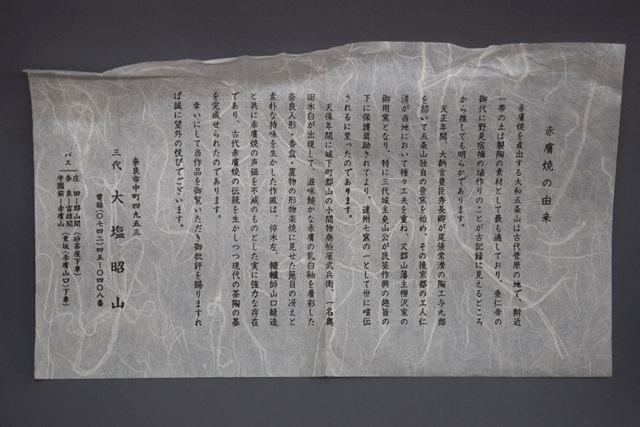 赤膚焼の由来
赤膚焼を産出する大和五条山は古代菅原の地で、附近
一帯の土は製陶の素材として最も適しており、垂仁帝の
御代に野見宿禰の埴作りのことが古記録に見えるところ
から推しても明らかであります。
天正年間、大納言豊臣秀長卿が尾張常滑の陶工与九郎
を招いて五条山独自の登窯を始め、その後京都の工人仁
清が当地において種々工夫を重ね、又郡山藩主柳沢家の
御用窯となり、特に三代城主堯山公が民芸作興の趣旨の
下に保護奨励されてより、遠州七窯の一として世に喧伝
されるに至ったのであります。
天保年間に城下町郡山の小間物商柏屋武兵衛、一名奥
田木白が出現して、滋味饒かな赤膚の乳白釉を着彩した
奈良人形・香盒・置物の形物楽焼に見せた箆目の冴えと
素朴な持味を生かした作風は、倅木左、轆轤師山口縫造
と共に赤膚焼の声価を不滅のものとした実に強力な存在
であり、古代赤膚焼の伝統を生かしつつ現代の茶陶の基
を完成せられたのであります。
幸いにして当作品を御覧いただき御批評を賜りますれ
ば誠に望外の悦びでございます。
奈良市中町四九五三
三代 大塩昭山
電話(〇七四二)四五ー〇四〇八番
バス
庄田ー郡山間(砂茶屋下車)
奈良ー富雄間
学園前ー赤膚山(東坂(赤膚山口)下車)